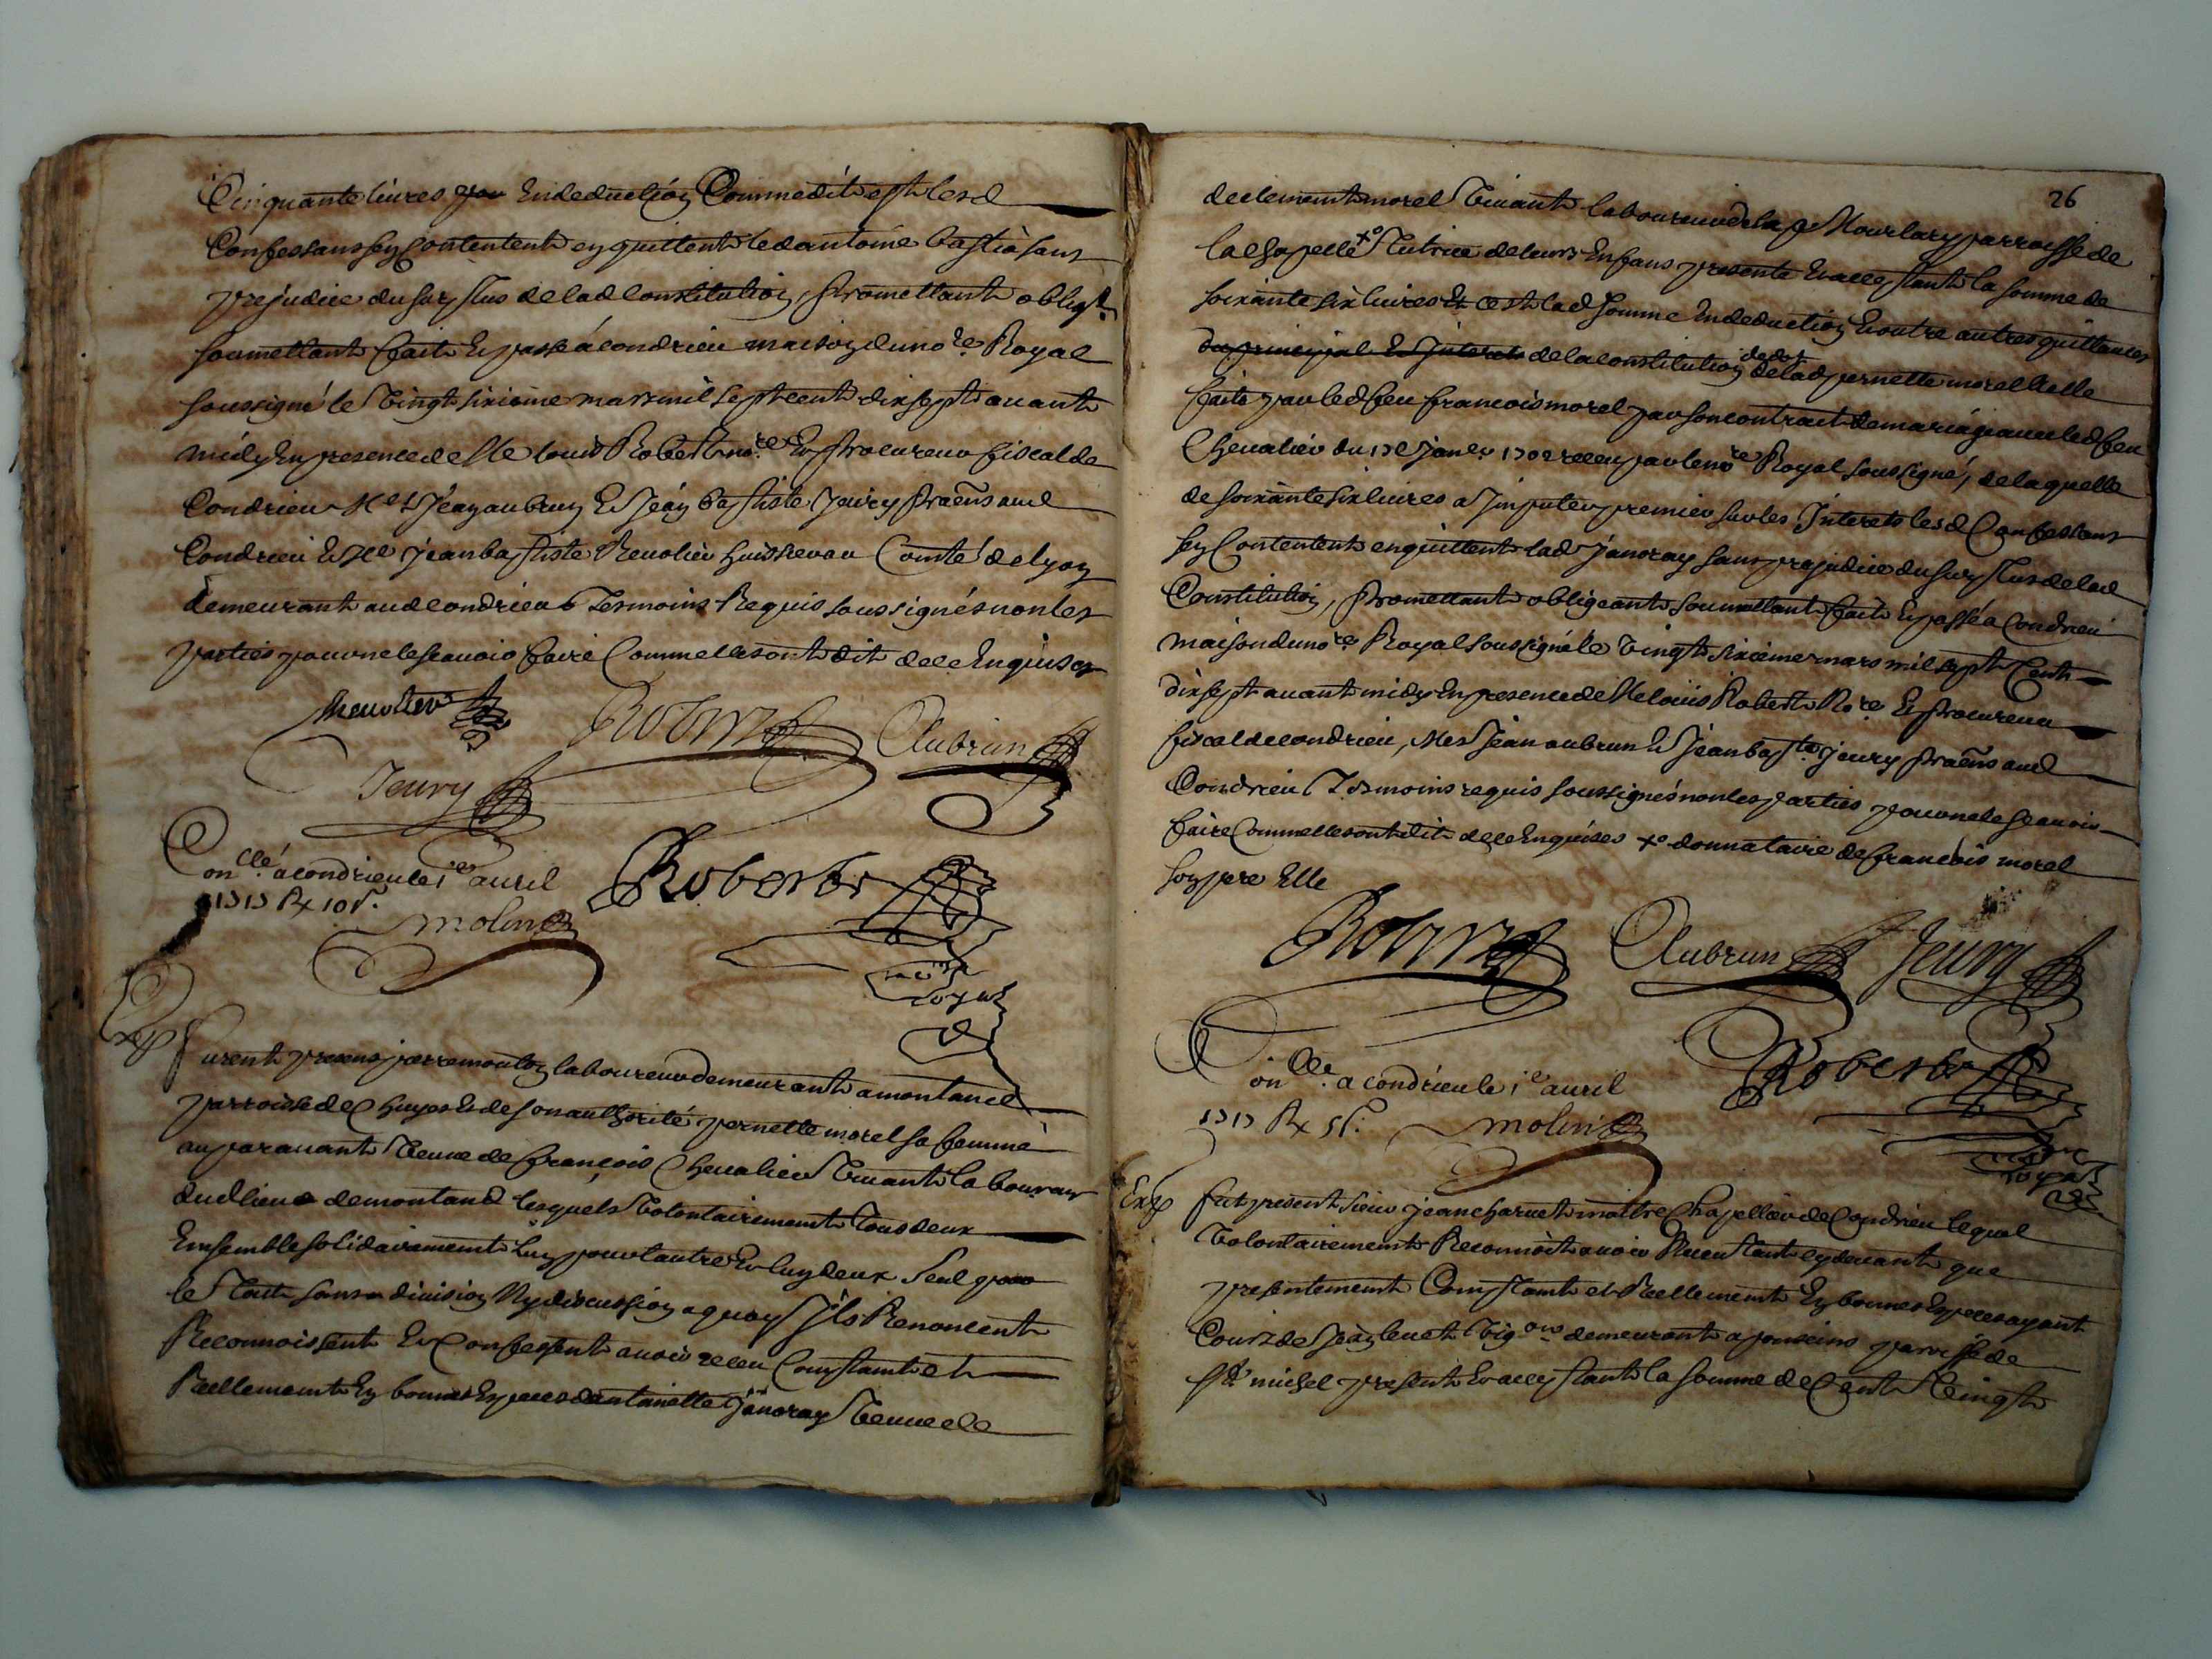 Cinquante livres en deduction Comme dit est lesd
Confessans sen Contentent en quittent led antoine bastia sans
prejudice du surplus de lad constitution, promettant oblig.t
soumettant fait et passé a condrieu maison du no.re Royal
soussigné le vingt sixieme mars mil sept cent dix sept avant
midy en presence de Me louis Robert no.re et procureur fiscal de
Condrieu Me Jean aubrun et Jean baptiste Jeury pratiens aud
Condrieu et Me jean baptiste Revolier huissier au Comté de lyon
demeurant aud condrieu Tesmoins Requis soussignés non les
parties pour ne le scavoir faire Comme elles ont dit de ce Enquises
Revolier Robert Aubrun
Jeury
Con.llé a condrieu le 1er avril Robert
1717 Rx 10 s.
molin
no.re
royal
Exp Furent presens pierre monton laboureur demeurant a montance
parroisse de Chuyes et de son authorité pernette morel sa femme
auparavant veuve de françois Chevalier vivant laboureur
dud lieu de montand lesquels volontairement tous deux
Ensemble solidairement lun pour lautre et luy deux seul pour
le Tout sans division Ny discussion a quoy Jls Renoncent
Reconnoissent Et Confessent avoir receu Comptant et
Reellement En bonnes Especes dantoinette janoray veuve de
26
de clement morel vivant laboureur de la parroisse de
la Chapelle xo Tutrice de leurs Enfans presente Et acceptante la somme de
soixante six livres Et cest lad somme En deduction Et outre autres quittances
du principal Et Jnterets de la constitution de dot de lad pernette morel Elle
faite par led feu francois morel par son contrait de mariage avec led feu
Chevalier du 17e Janv.r 1702 receu par le no.re Royal soussigné, de laquelle
de soixante six livres a Jmputer premier sur les Jnterets lesd Confessans
sen Contentent en quittent lad janoray sans prejudice du surplus de lad
Constitution, promettant obligeant soumettant fait et passé a Condrieu
maison du no.re Royal soussigné le vingt sixieme mars mil sept Cent
dix sept avant midy En presence de Me louis Robert No.re Et procureur
fiscal de condrieu, Mes Jean aubrun Et Jean bap.te jeury pratiens aud
Condrieu Tesmoins requis soussignés non les parties pour ne le scavoir
faire Comme elles ont dit de ce Enquises xo donnataire de francois morel
son pere Elle
Robert Aubrun Jeury
Con.llé a condrieu le 1e avril Robert
1717 Rx 5 s. molin
no.re
royal
Exp fut present sieur jean charvet maitre Chapellier de Condrieu lequel
volontairement Reconnoit avoir Receu tant cy devant que
presentement Comptant et Reellement En bonnes Especes ayant
Cours de Jean levet vig.on demeurant a ponsins parroisse de
St michel present Et acceptant la somme de Cent vingt